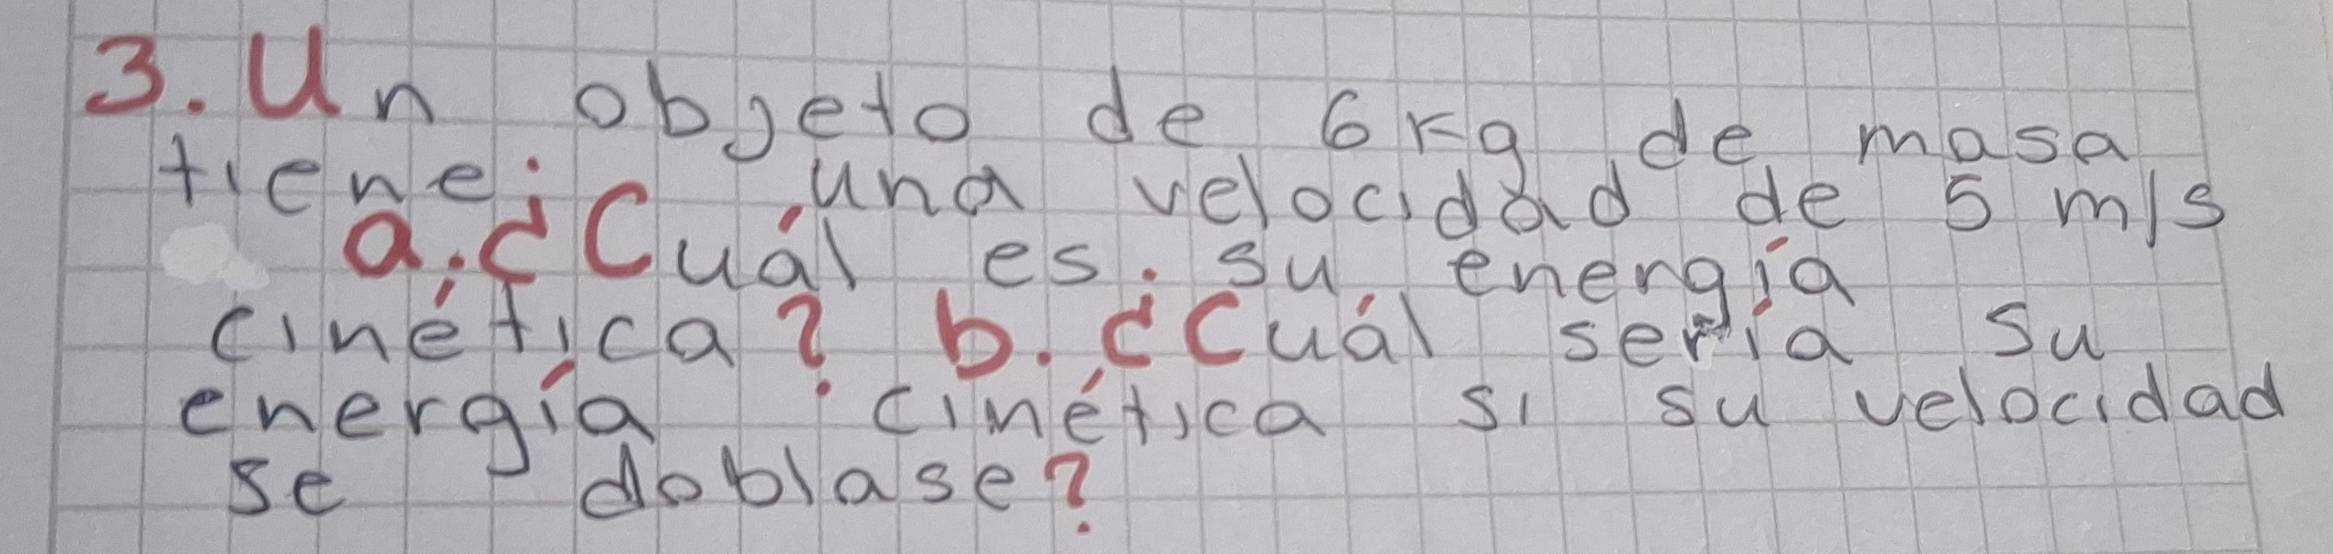 3. Un objeto de 6 Kg de masa
tiene una velocidad de 5 m/s
a. ¿Cuál es su energía
cinética? b. ¿Cuál sería su
energía cinética si su velocidad
se doblase?